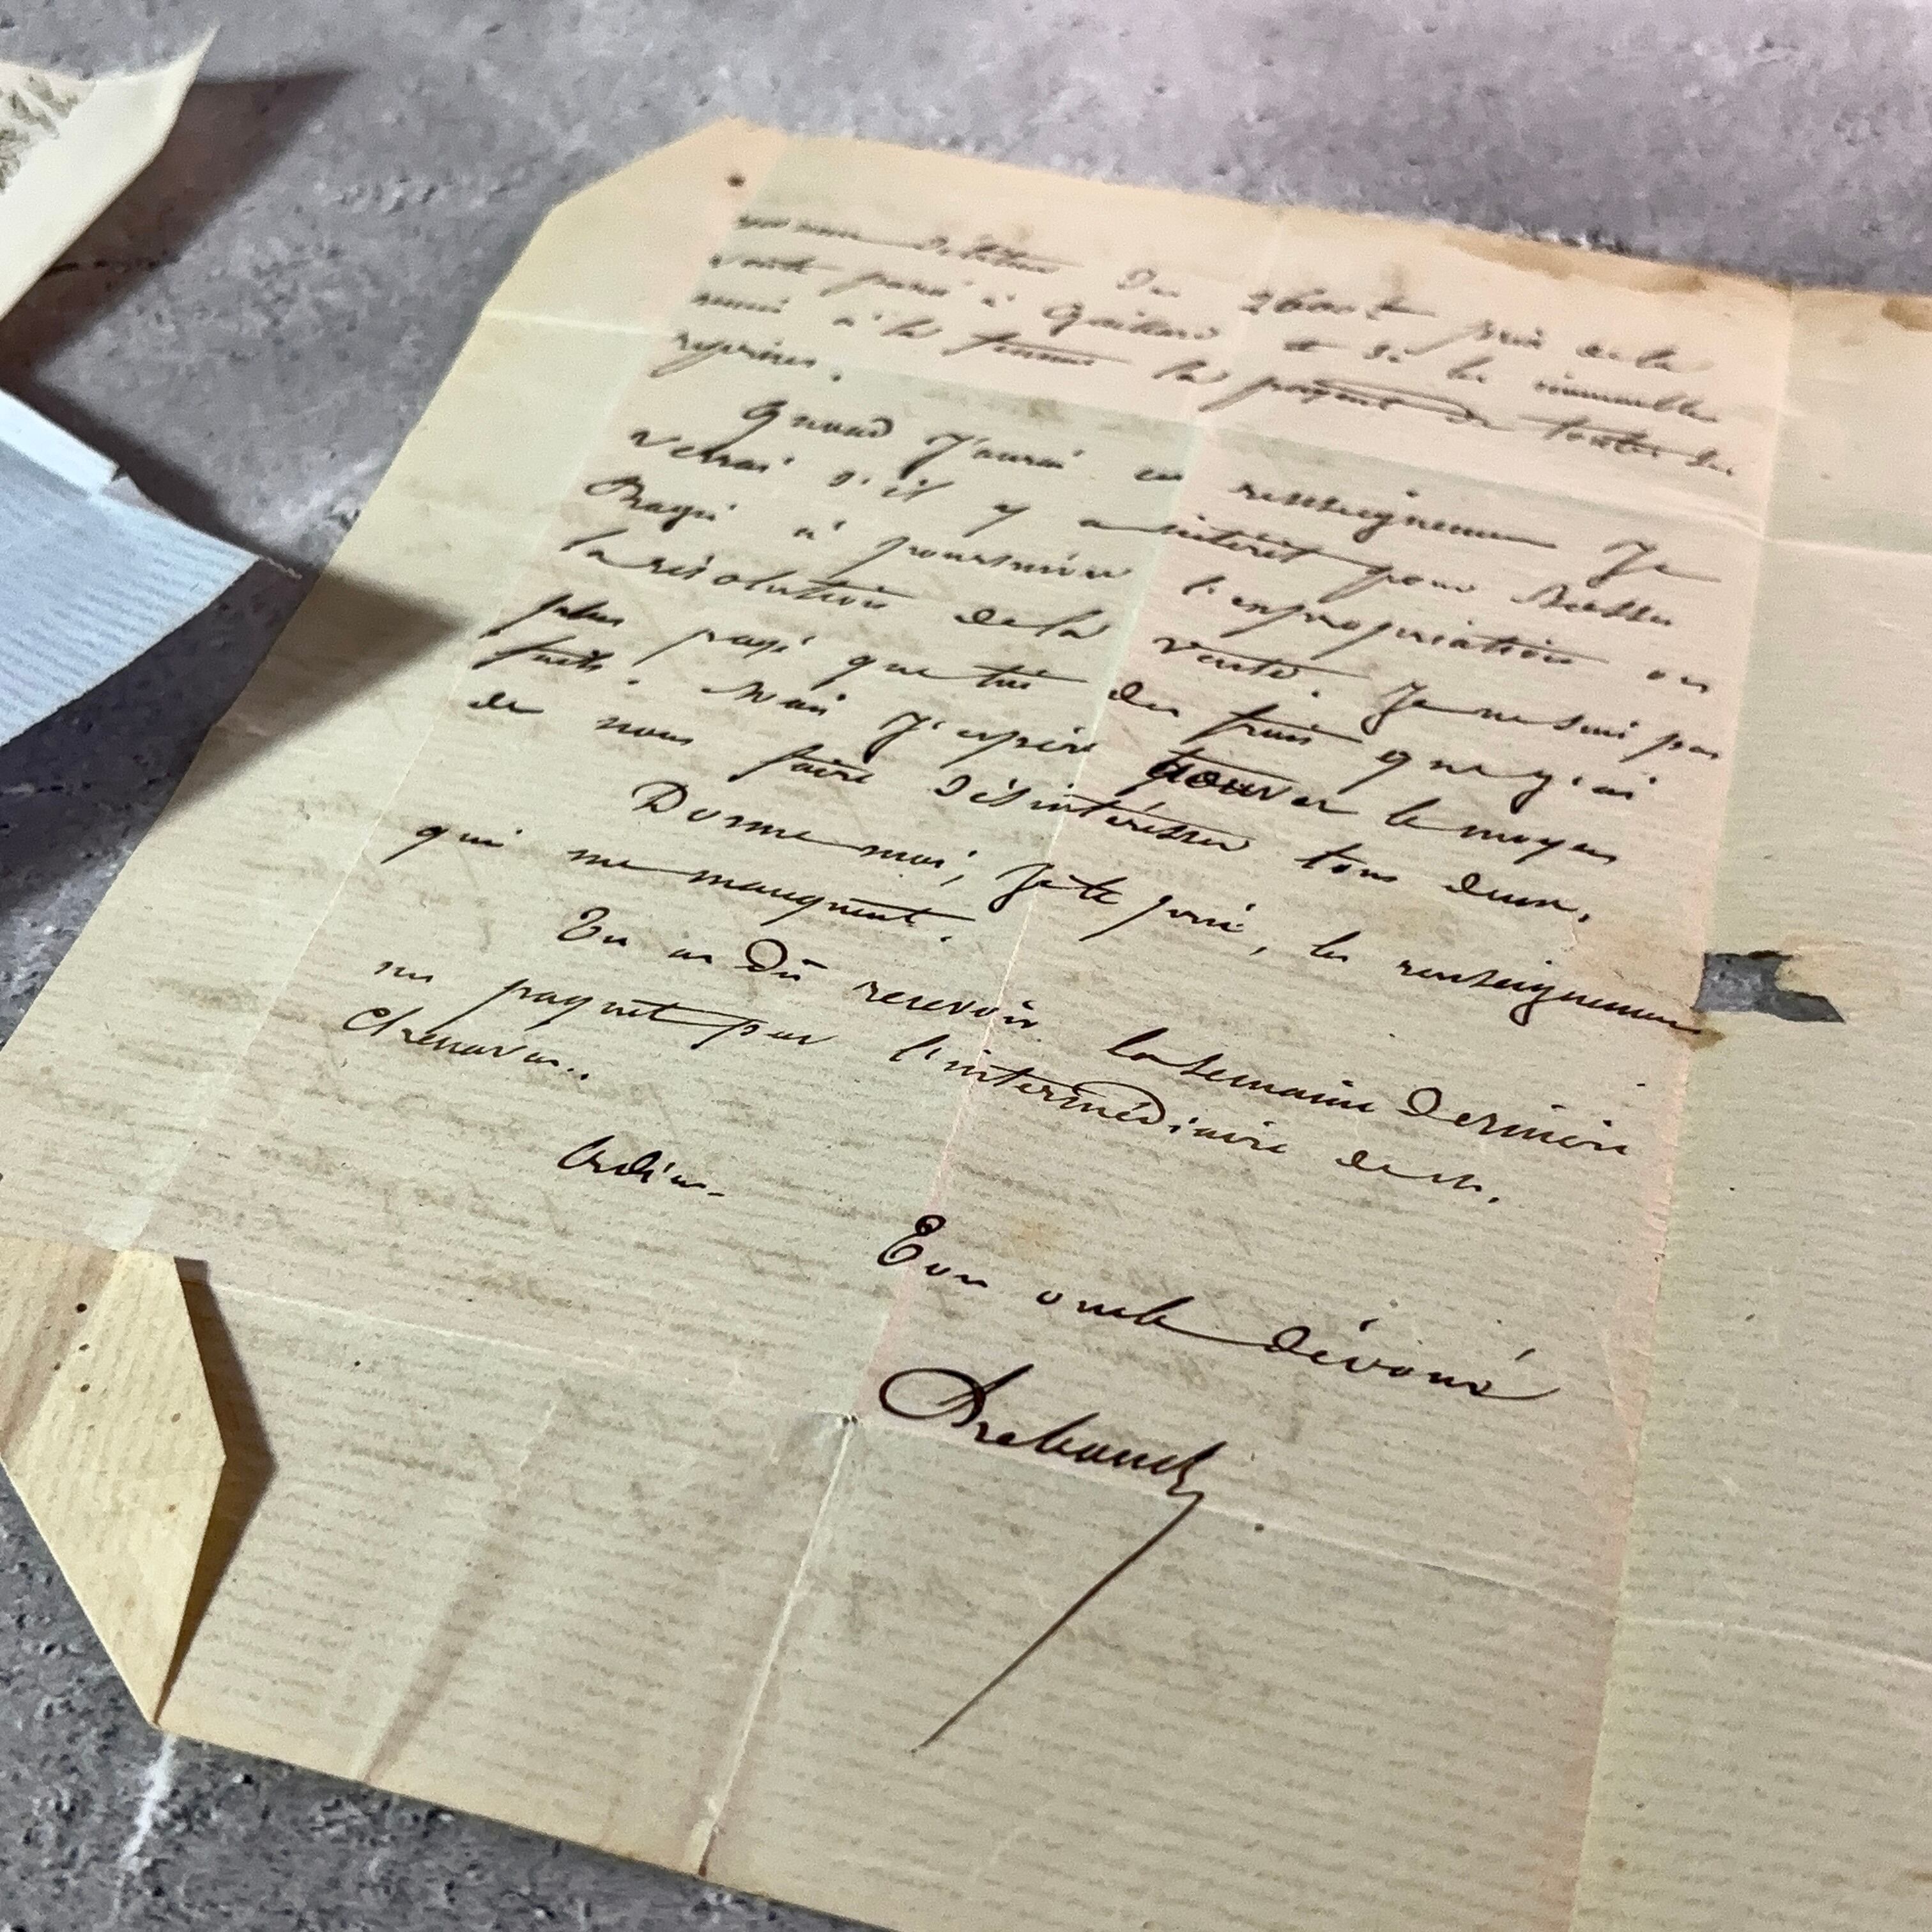 débiteur du 2600f prix de la
vente passé à Gaillard et si les immeubles
à la femme le payent de toutes ses
reprises.
Quand J'aurai ces renseignemens Je
verrai s'il y a intérêt pour
à poursuivre l'expropriation ou
la résolution de la vente. Je ne suis pas
plus payé que toi des frais que j'ai
faits. Mais J'espère trouver le moyen
de nous faire désintéresser tous deux.
Donne moi, Je te prie, les renseignemens
qui me manquent.
Tu as dû recevoir la semaine dernière
un paquet par l'intermédiaire de M.
Chenavas..
Adieu.
Ton oncle dévoué